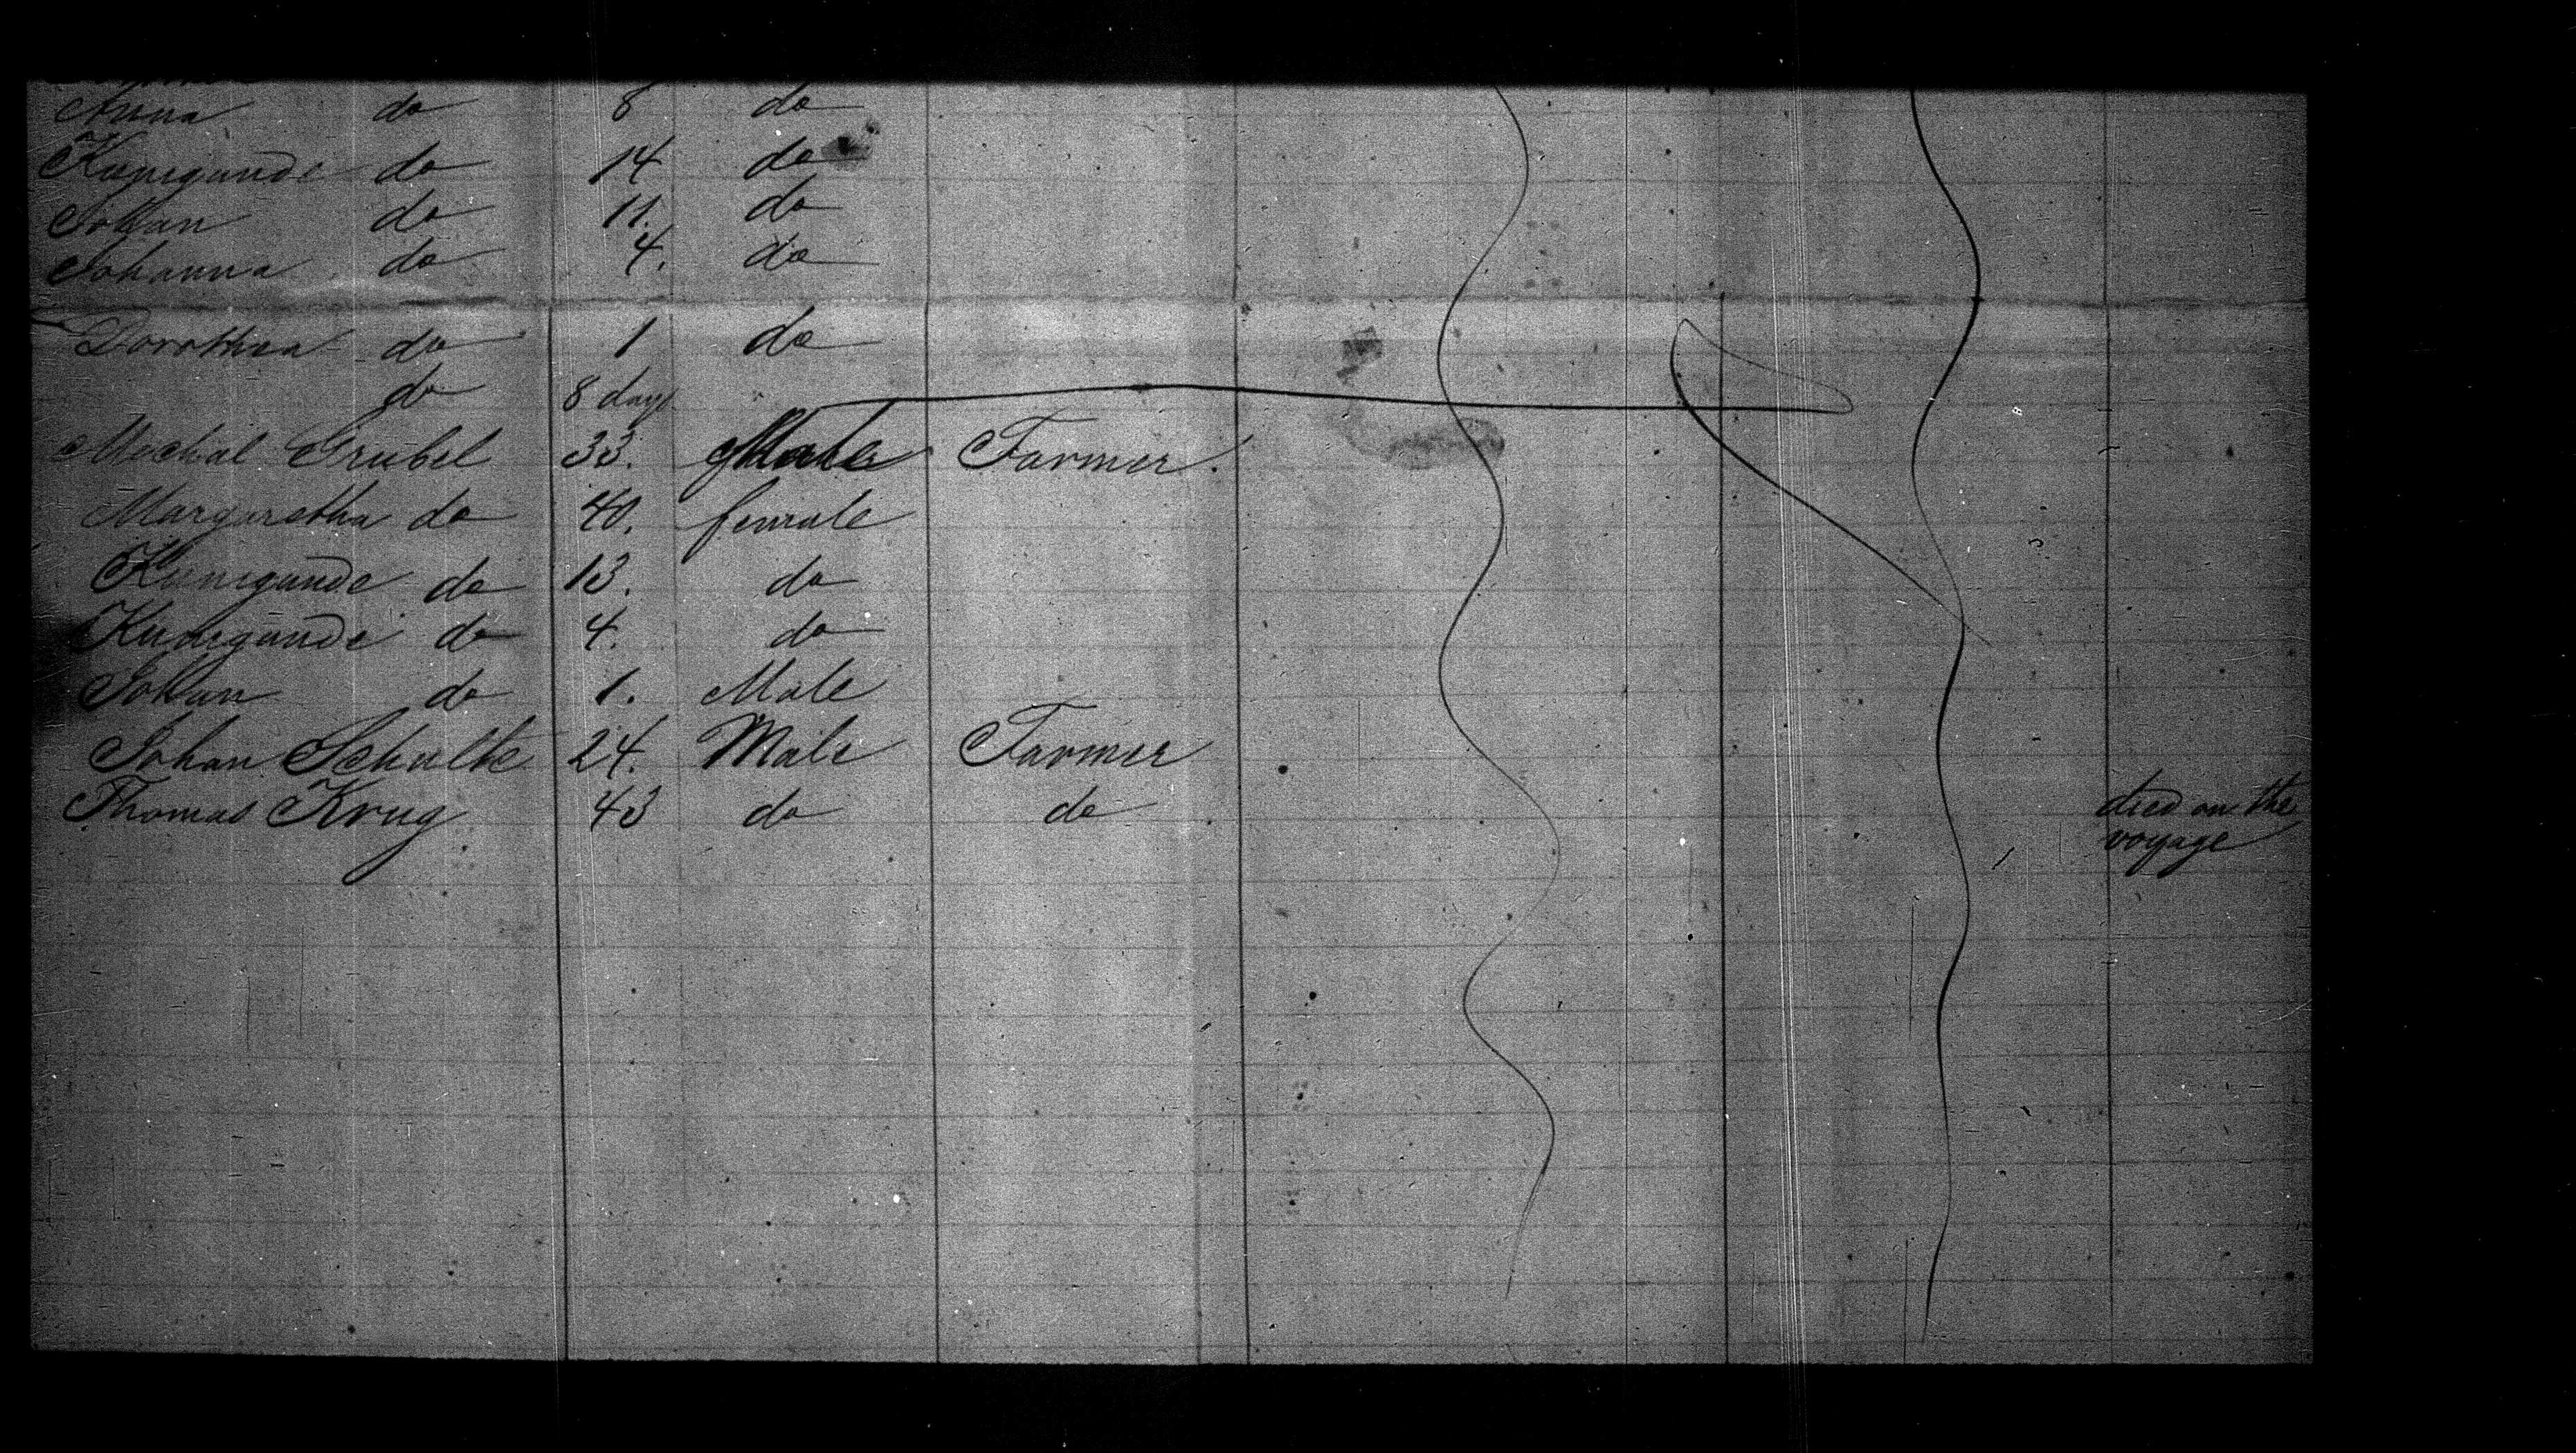 Anna do 8 do
Kunigunde do 14 do
Johan do 11. do
Johanna do 4. do
Dorothea do 1 do
do 8 days
Mechal Grübel 33. Male Farmer.
Margaretha do 40. female
Kunigunde do 13. do
Kunigunde do 4. do
Johan do 1. Male
Johan Schulte 24. Male Farmer
Thomas Krug 43 do do died on the
voyage